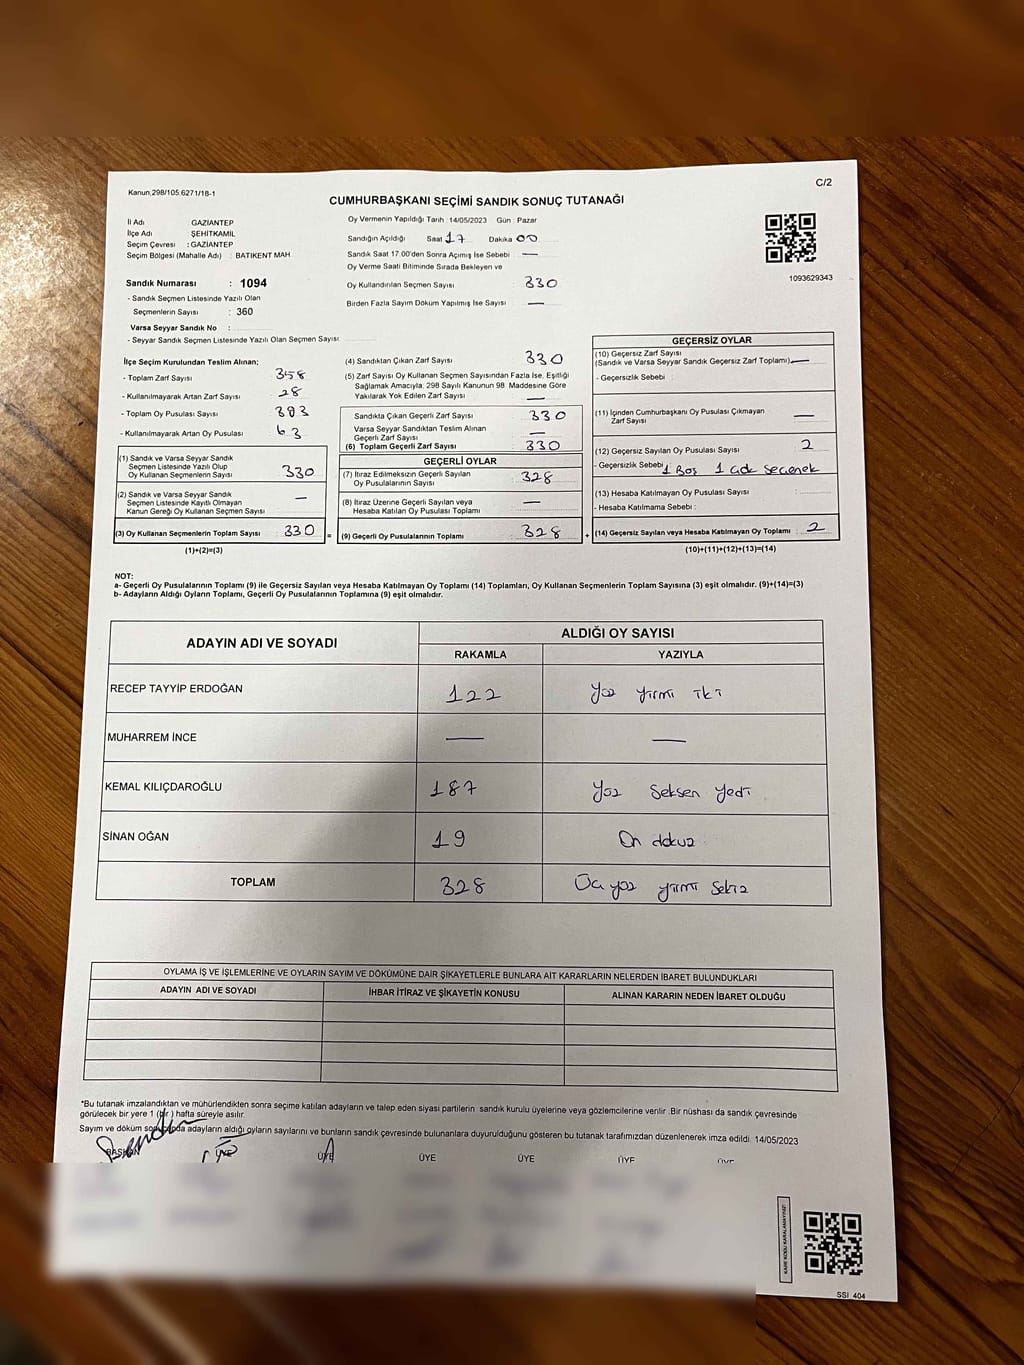 Kanun,298/105:6271/18-1
C/2
CUMHURBAŞKANI SEÇİMİ SANDIK SONUÇ TUTANAĞI
İl Adı : GAZİANTEP
İlçe Adı : ŞEHİTKAMİL
Seçim Çevresi : GAZİANTEP
Seçim Bölgesi (Mahalle Adı) : BATIKENT MAH.
Sandık Numarası : 1094
- Sandık Seçmen Listesinde Yazılı Olan
Seçmenlerin Sayısı : 360
Varsa Seyyar Sandık No :
- Seyyar Sandık Seçmen Listesinde Yazılı Olan Seçmen Sayısı :
Oy Vermenin Yapıldığı Tarih : 14/05/2023 Gün : Pazar
Sandığın Açıldığı Saat 17 Dakika 00
Sandık Saat 17.00'den Sonra Açımış İse Sebebi —
Oy Verme Saati Bitiminde Sırada Bekleyen ve
Oy Kullandırılan Seçmen Sayısı 330
Birden Fazla Sayım Döküm Yapılmış İse Sayısı —
1093629343
İlçe Seçim Kurulundan Teslim Alınan;
- Toplam Zarf Sayısı 358
- Kullanılmayarak Artan Zarf Sayısı 28
- Toplam Oy Pusulası Sayısı 393
- Kullanılmayarak Artan Oy Pusulası 63
(1) Sandık ve Varsa Seyyar Sandık
Seçmen Listesinde Yazılı Olup
Oy Kullanan Seçmenlerin Sayısı 330
(2) Sandık ve Varsa Seyyar Sandık
Seçmen Listesinde Kayıtlı Olmayan
Kanun Gereği Oy Kullanan Seçmen Sayısı —
(3) Oy Kullanan Seçmenlerin Toplam Sayısı 330 =
(1)+(2)=(3)
(4) Sandıktan Çıkan Zarf Sayısı 330
(5) Zarf Sayısı Oy Kullanan Seçmen Sayısından Fazla İse, Eşitliği
Sağlamak Amacıyla; 298 Sayılı Kanunun 98. Maddesine Göre
Yakılarak Yok Edilen Zarf Sayısı —
Sandıkta Çıkan Geçerli Zarf Sayısı 330
Varsa Seyyar Sandıktan Teslim Alınan
Geçerli Zarf Sayısı —
(6) Toplam Geçerli Zarf Sayısı 330
GEÇERLİ OYLAR
(7) İtiraz Edilmeksizin Geçerli Sayılan
Oy Pusulalarının Sayısı 328
(8) İtiraz Üzerine Geçerli Sayılan veya
Hesaba Katılan Oy Pusulası Toplamı —
(9) Geçerli Oy Pusulalarının Toplamı 328 +
GEÇERSİZ OYLAR
(10) Geçersiz Zarf Sayısı
(Sandık ve Varsa Seyyar Sandık Geçersiz Zarf Toplamı) —
- Geçersizlik Sebebi :
(11) İçinden Cumhurbaşkanı Oy Pusulası Çıkmayan
Zarf Sayısı —
(12) Geçersiz Sayılan Oy Pusulası Sayısı 2
- Geçersizlik Sebebi 1 Boş 1 çok seçenek
(13) Hesaba Katılmayan Oy Pusulası Sayısı :
- Hesaba Katılmama Sebebi :
(14) Geçersiz Sayılan veya Hesaba Katılmayan Oy Toplamı 2
(10)+(11)+(12)+(13)=(14)
NOT:
a- Geçerli Oy Pusulalarının Toplamı (9) ile Geçersiz Sayılan veya Hesaba Katılmayan Oy Toplamı (14) Toplamları, Oy Kullanan Seçmenlerin Toplam Sayısına (3) eşit olmalıdır. (9)+(14)=(3)
b- Adayların Aldığı Oyların Toplamı, Geçerli Oy Pusulalarının Toplamına (9) eşit olmalıdır.
ADAYIN ADI VE SOYADI
ALDIĞI OY SAYISI
RAKAMLA YAZIYLA
RECEP TAYYİP ERDOĞAN 122 Yüz yirmi iki
MUHARREM İNCE — —
KEMAL KILIÇDAROĞLU 187 Yüz Seksen Yedi
SİNAN OĞAN 19 On dokuz
TOPLAM 328 Üç yüz yirmi Sekiz
OYLAMA İŞ VE İŞLEMLERİNE VE OYLARIN SAYIM VE DÖKÜMÜNE DAİR ŞİKAYETLERLE BUNLARA AİT KARARLARIN NELERDEN İBARET BULUNDUKLARI
ADAYIN ADI VE SOYADI İHBAR İTİRAZ VE ŞİKAYETİN KONUSU ALINAN KARARIN NEDEN İBARET OLDUĞU
*Bu tutanak imzalandıktan ve mühürlendikten sonra seçime katılan adayların ve talep eden siyasi partilerin sandık kurulu üyelerine veya gözlemcilerine verilir. Bir nüshası da sandık çevresinde
görülecek bir yere 1 (bir) hafta süreyle asılır.
Sayım ve döküm sonucunda adayların aldığı oyların sayılarını ve bunların sandık çevresinde bulunanlara duyurulduğunu gösteren bu tutanak tarafımızdan düzenlenerek imza edildi. 14/05/2023
BAŞKAN ÜYE ÜYE ÜYE ÜYE ÜYE ÜYE
KARE KODU KARALAMAYINIZ!
SSI 404